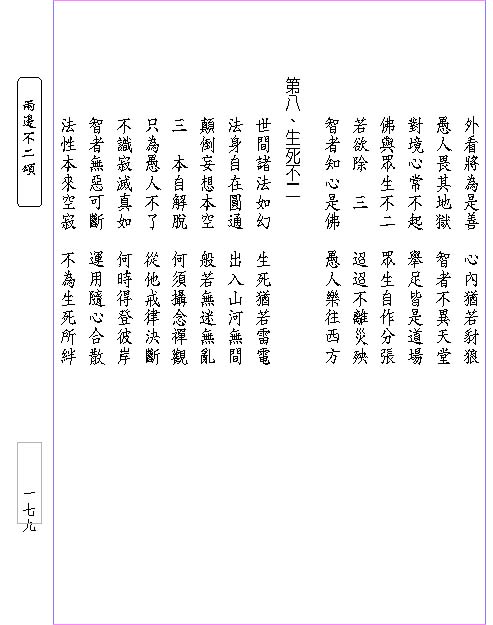 外看將為是善　心內猶若豺狼
愚人畏其地獄　智者不異天堂
對境心常不起　舉足皆是道場
佛與眾生不二　眾生自作分張
若欲除　三　迢迢不離災殃
智者知心是佛　愚人樂往西方
第八、生死不二
世間諸法如幻　生死猶若雷電
法身自在圓通　出入山河無間
顛倒妄想本空　般若無迷無亂
三　本自解脫　何須攝念禪觀
只為愚人不了　從他戒律決斷
不識寂滅真如　何時得登彼岸
智者無惡可斷　運用隨心合散
法性本來空寂　不為生死所絆
兩邊不二頌
一七九